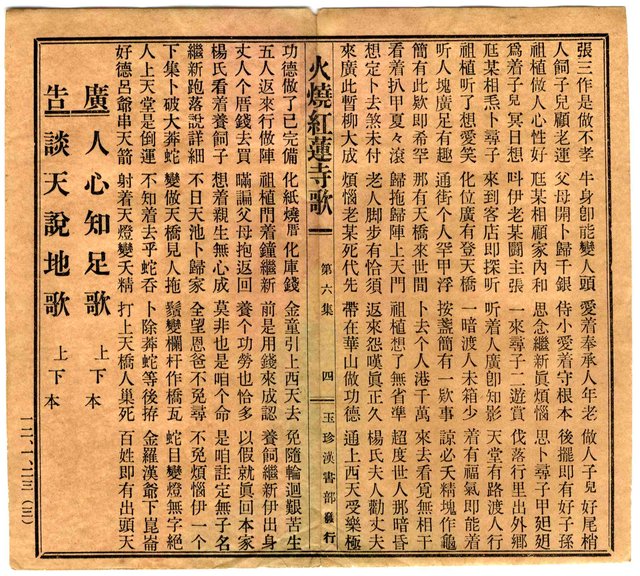 張三作是做不孝 牛身卽能變人頭 愛着奉承人年老 做人子兒好尾梢
人飼子兒顧老運 父母開卜歸千銀 侍小愛着守根本 後擺即有好子孫
祖植做人心性好 尫某相顧家內和 思念繼新眞煩惱 思卜尋子甲廻廻
爲着子兒冥日想 呌伊老某鬪主張 一來尋子二遊賞 伐落行里出外鄉
尫某相炁卜尋子 來到客店即探听 听着人廣卽知影 天堂有路渡人行
祖植听了想愛笑 化位廣有登天橋 一暗渡人未箱少 着有福氣即能着
听人塊廣足有趣 通街个人罕甲浮 按盞簡有一欵事 諒必夭精塊作龜
簡有此欵即希罕 那有天橋來世間 卜去个人港千萬 來去看覓無相干
看着扒甲夏々滾 歸拖歸陣上天門 祖植想了無省準 超度世人那暗昏
想定卜去煞未付 老人脚步有恰須 返來怨嘆眞正久 楊氏夫人勸丈夫
來廣此暫柳大成 煩惱老某死代先 帶在華山做功德 通上西天受樂極
火燒紅蓮寺歌 第六集 四 玉珍漢書部發行
功德做了已完備 化紙燒厝化庫錢 金童引上西天去 免隨輪迴艱苦生
五人返來行做陣 祖植門着鐘繼新 前是用錢來成認 養飼繼新伊出身
丈人个厝錢去買 瞞諞父母抱返回 養个功勞也恰多 以假就眞回本家
楊氏看着養飼子 想着親生無心成 莫非也是咱个命 是咱註定無子名
繼新跑落說詳細 不日天池卜歸家 全望恩爸不免尋 不免煩惱伊一个
下集卜破大莽蛇 變做天橋見人拖 鬚變欄杆作橋瓦 蛇目變燈無字絕
人上天堂是倒運 不知着去乎蛇吞 卜除莽蛇等後拵 金羅漢爺下崑崙
好德呂爺串天箭 射着天燈變夭精 打上天橋人巢死 百姓即有出頭天
廣告
人心知足歌 上下本
談天說地歌 上下本